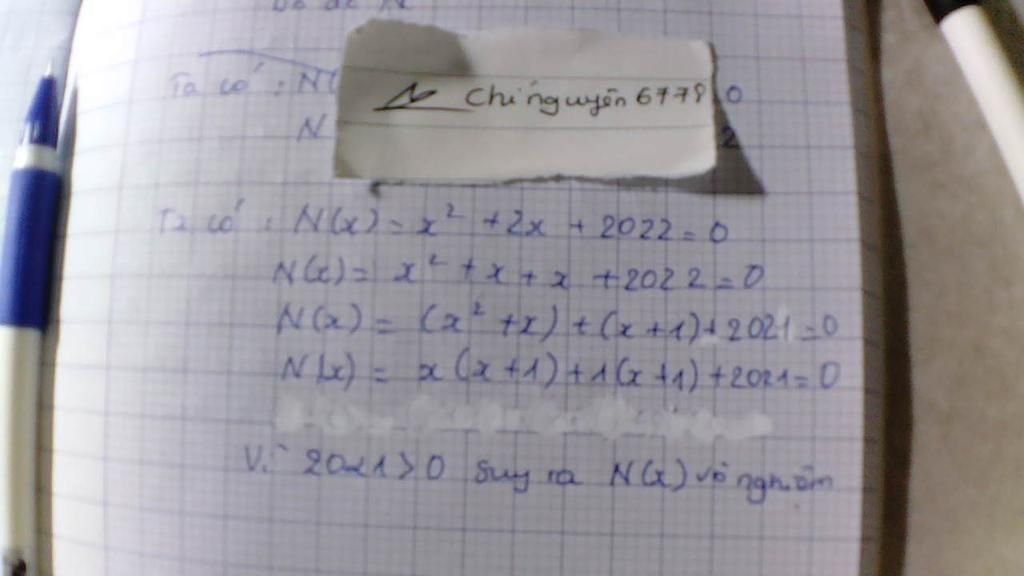 Ta có : N(
Chí nguyên 6778
0
N
2
Ta có : N(x) = x² + 2x + 2022 = 0
N(x) = x² + x + x + 2022 = 0
N(x) = (x² + x) + (x + 1) + 2021 = 0
N(x) = x(x+1) + 1(x+1) + 2021 = 0
Vì 2021 > 0 suy ra N(x) vô nghiệm